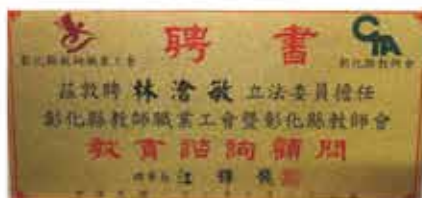 聘書
彰化縣教師職業工會
CTA
彰化縣教師會
茲敦聘 林滄敏 立法委員擔任
彰化縣教師職業工會暨彰化縣教師會
教育諮詢顧問
理事長 江